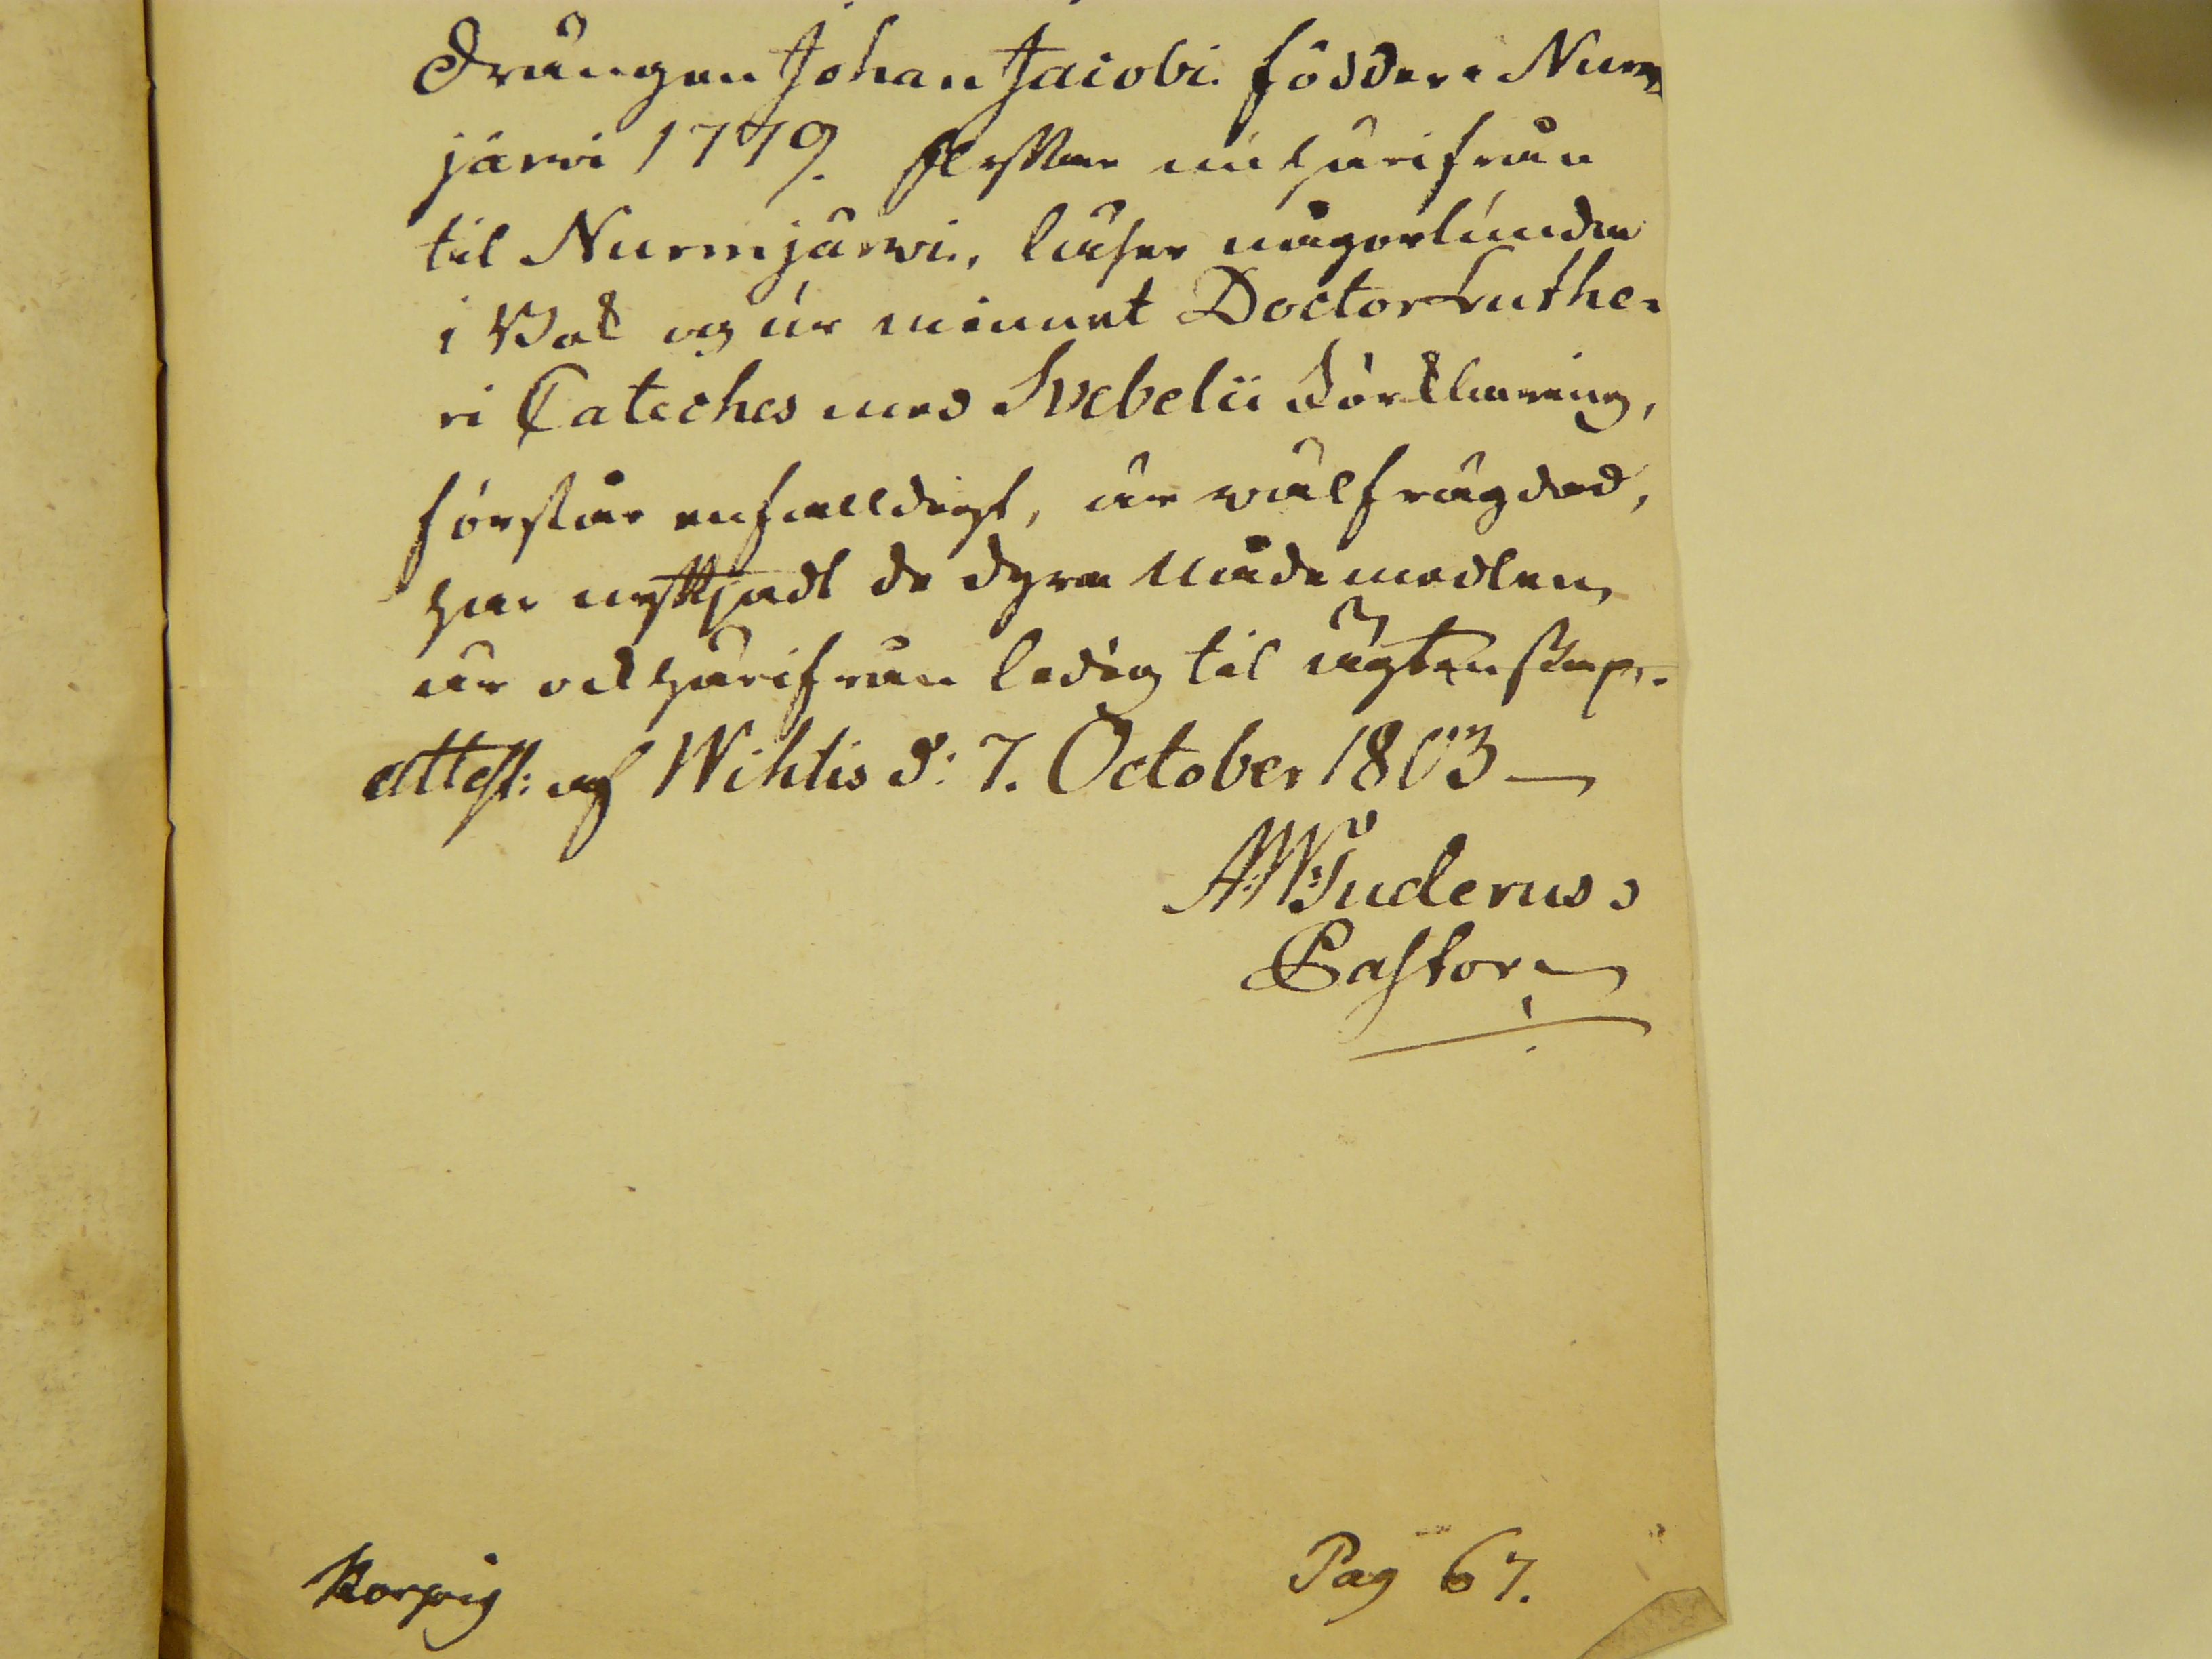 Drängen Johan Jacobi. född i Nurm
järvi 1779. flyttar nu härifrån
til Nurmjärwi, läser någorlunda
i Bok og ur minnet Doctor Luthe-
ri Cateches med Svebelii Förklaring,
förstår enfalldigt, är wälfrägdad,
har nyttjadt de dyra Nådemedlen,
är ock härifrån ledig til ägtenskap.
attest: af Wihtis d: 7. October 1803
A:W: Tuderus
Pastor
Korpis
Pag 67.